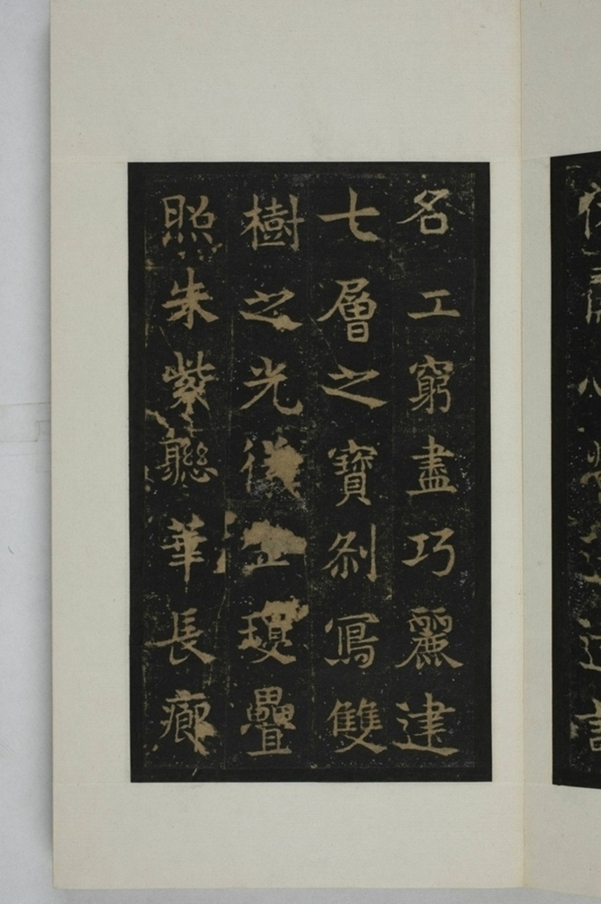 名工窮盡巧麗建
七層之寶刹寫雙
樹之光後璚疊
照朱紫聽華長廊